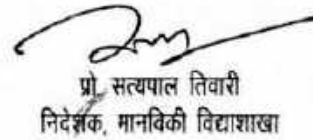 प्रो. सत्यपाल तिवारी
निदेशक, मानविकी विद्याशाखा